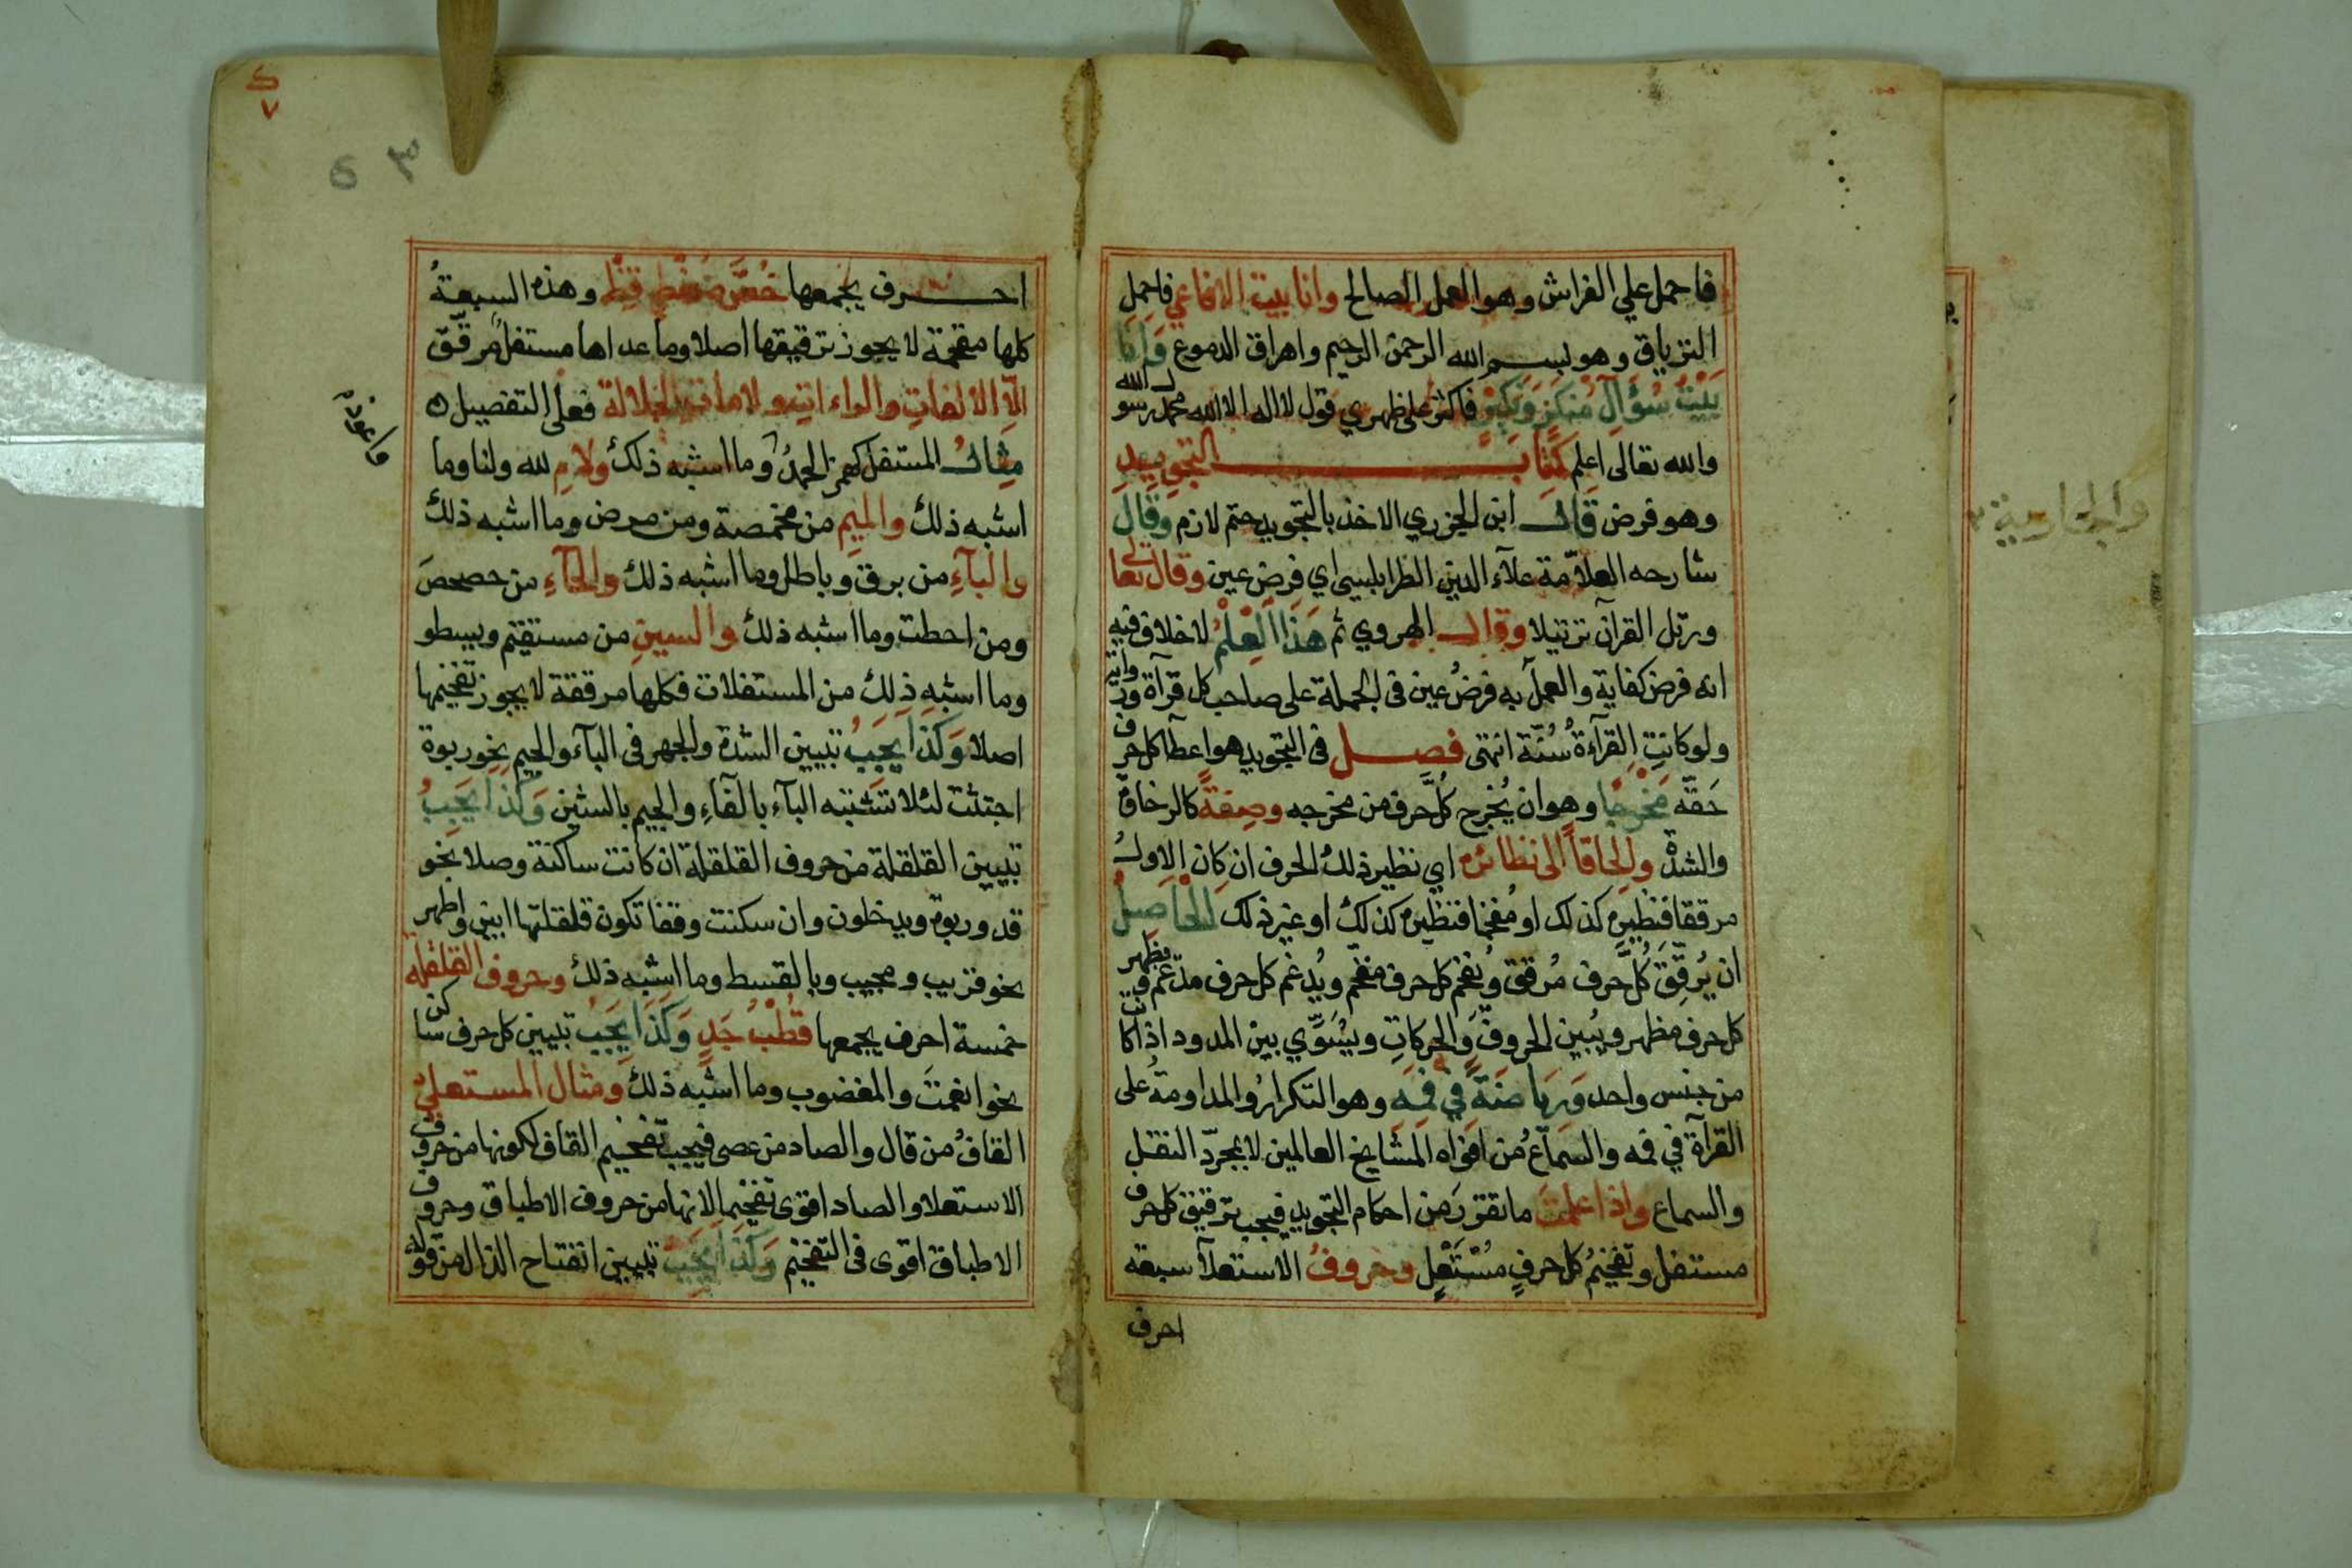 فاحمل علي الفراش وهو العمل الصالح وانا بيت الافاعي فاحمل
الترياق وهو بسم الله الرحمن الرحيم واهراق الدموع وَانَا
بَيْتُ سُؤَالِ مُنْكَرٍ وَنَكِيْرٍ فاكثر على ظهري قول لا اله الا الله محمد رسول الله
والله تعالى اعلم كتاب التجويد
وهو فرض قال ابن الجزري الاخذ بالتجويد حتم لازم وقال
شارحه العلاّمة علآء الدين الطرابلسي اي فرض عين وقال تعالى
ورتل القرآن ترتيلا وقال الهروي ثم هَذَا الْعِلْمُ لاخلاف فيه
انه فرض كفاية والعمل به فرضُ عين فى الجملة على صاحب كل قرآة ورواية
ولو كانتِ القرآءةُ سُنّة انتهى فصل فى التجويد هو اعطآ كل حرف
حَقّه مَخْرجًا وهو ان يُخرج كلَّ حرف من مخرجه وصِفةً كالرخاوة
والشدّة والحاقاً الى نظائره اي نظير ذلك الحرف ان كان الاول
مرققا فنظيره كذلك او مُفخما فنظيره كذلك او غير ذلك الْحَاصِلُ
ان يُرقِّقَ كُلَّ حرف مُرقق ويُفخم كل حرف مفخّم ويُدغم كل حرف مدّغم ويظهر
كل حرف مظهر ويُبين الحروفَ وَالحركاتِ ويُسَوِّي بين المدود اذا كانت
من جنس واحد وَرِيَاضَةً فِي فَمِهِ وهو التكرارُ والمداومةُ على
القرآة في فمه والسماعُ من افواه المشايخ العالمين لا بمجردّ النقل
والسماع واذا علمتَ ما تقرر من احكام التجويد فيجب ترقيق كل حرف
مستفل وتفخيمُ كل حرفٍ مُسْتَعْلٍ وحروفُ الاستعلآ سبعة
احرف
احرف يجمعها خُصَّ ضَغْطٍ قِظْ وهذه السبعةُ
كلها مفخمة لا يجوز ترقيقها اصلا وما عداها مستفل مُرقّق
الاّ الالفاتِ والراءاتِ ولامات الجلالة فعلى التفصيل
مثال المستفل كهمز الحمدُ وما اشبه ذلك ولامِ لله ولنا وما
اشبه ذلك والميمِ من مخمصة ومن مرض وما اشبه ذلك
والبآءِ من برق وباطل وما اشبه ذلك والحآءِ من حصحصَ
ومن احطت وما اشبه ذلك والسينِ من مستقيم ويسطو
وما اشبه ذلك من المستفلات فكلها مرققة لا يجوز تفخيمها
اصلا وَكَذَا يَجِبُ تبيين الشدة والجهر فى البآء والجيم نحو ربوة
اجتثت لئلا تشتبه البآء بالفآءِ والجيم بالشين وَكَذَا يَجِبُ
تبيين القلقلة من حروف القلقلة ان كانت ساكنة وصلا نحو
قد وربوة ويدخلون وان سكنت وقفا تكون قلقلتها ابين واظهر
نحو قريب ومجيب وبالقسط وما اشبه ذلك وحروف القلقلة
خمسة احرف يجمعها قُطْبُ جَدٍ وَكَذَا يَجِبُ تبيين كل حرف ساكن
نحو انعمتَ والمغضوب وما اشبه ذلك ومثال المستعلى
القافُ من قال والصاد من عصى فيجب تفخيم القاف لكونها من حروف
الاستعلا والصاد اقوى تفخيما لانها من حروف الاطباق وحروف
الاطباق اقوى فى التفخيم وَكَذَا يَجِبُ تبيين انفتاح الذال من قوله